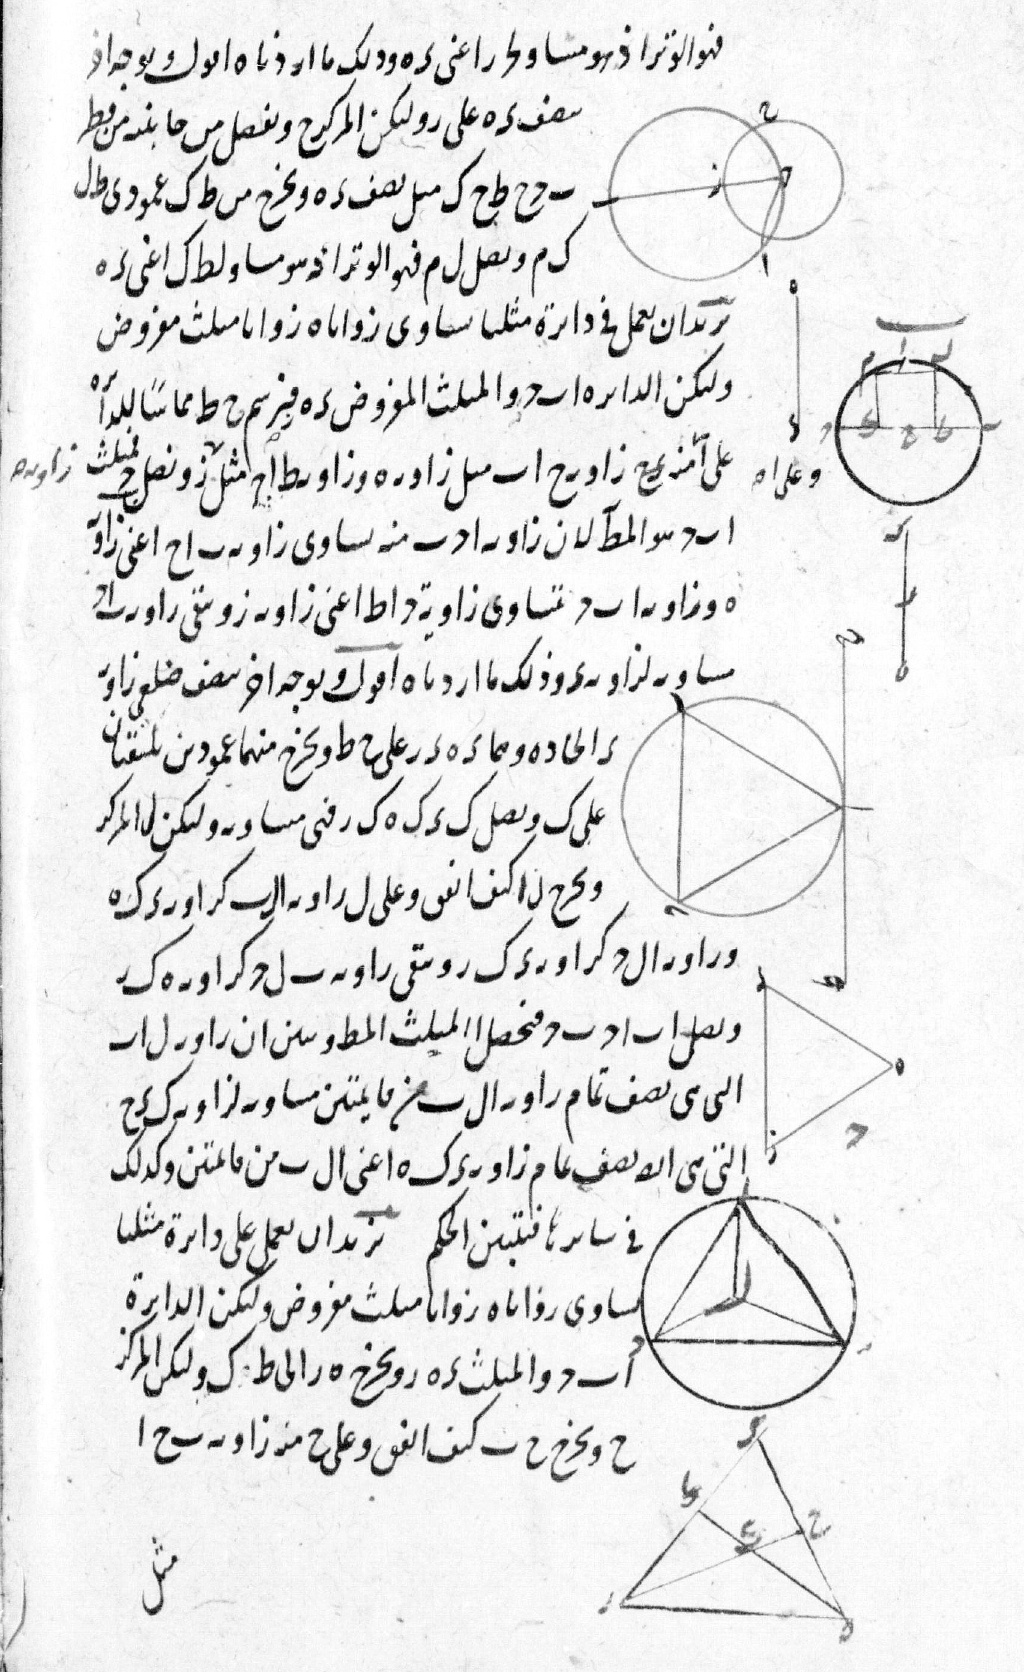 فهو الوتر اذ هو مساو لحد اعنى ءه وذلك ما اردناه اقول وبوجه اخر
ننصف ءه على ر وليكن المركز ح ونفصل من جانبيه من قطر
ب ح د ح ط ح ك مثل نصف ءه ونخرج من ط ك عمودى ط ل
ك م ونصل ل م فهو الوتر اذ هو مساو لط ك اعنى ءه
نريد ان نعمل فى دايرة مثلثا يساوى زواياه زوايا مثلث مفروض
وليكن الدايره اب ح والمثلث المفروض ءه ز فنرسم ح ط مماسا للدائره
على ا منه زاوية ح اب مثل زاويه ه وزاويه ط اح مثل ز ونصل ب ح فمثلث
وعلى ا
زاويه
اب ح هو المط لان زاويه اح ب منه يساوى زاويه ب اح اعنى زاويه
ه وزاويه اب ح تساوى زاوية ح اط اعنى زاويه ز وتبقى زاويه ب اح
مساويه لزاويه ء وذلك ما اردناه اقول وبوجه اخر ننصف ضلعى زاويه
ء الحاده وهما ءه ءر على ح ط ونخرج منهما عمودين يلتقيان
على ك ونصل ك ء ك ه ك ر فهى متساويه وليكن ل المركز
ونخرج ل ا كيف اتفق وعلى ل زاويه ال ب كزاويه ء ك ه
وزاويه ال ح كزاويه ء ك ر وتبقى زاويه ب ل ح كزاويه ه ك ر
ونصل اب اح ب ح فيحصل المثلث المط وتبين ان زاويه ل اب
التى هى نصف تمام زاويه ال ب من قايمتين مساويه لزاويه ك ء ح
التى هى نصف تمام زاويه ء ك ه اعنى ال ب من قايمتين وكذلك
فى سايرها فيتبين الحكم نريد ان نعمل على دايرة مثلثا
يساوى زواياه زوايا مثلث مفروض وليكن الدايرة
اب ح والمثلث ءه ر ونخرج ه ر الى ط ك وليكن المركز
ح ونخرج ح ب كيف اتفق وعلى ح منه زاويه ب ح ا
مثل